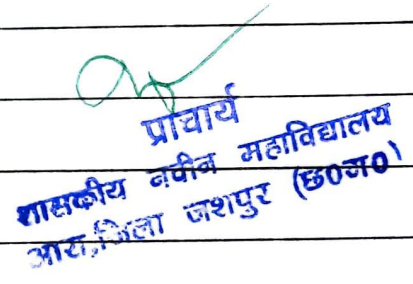 प्राचार्य
शासकीय नवीन महाविद्यालय
आरा,जिला जशपुर (छ0ग0)